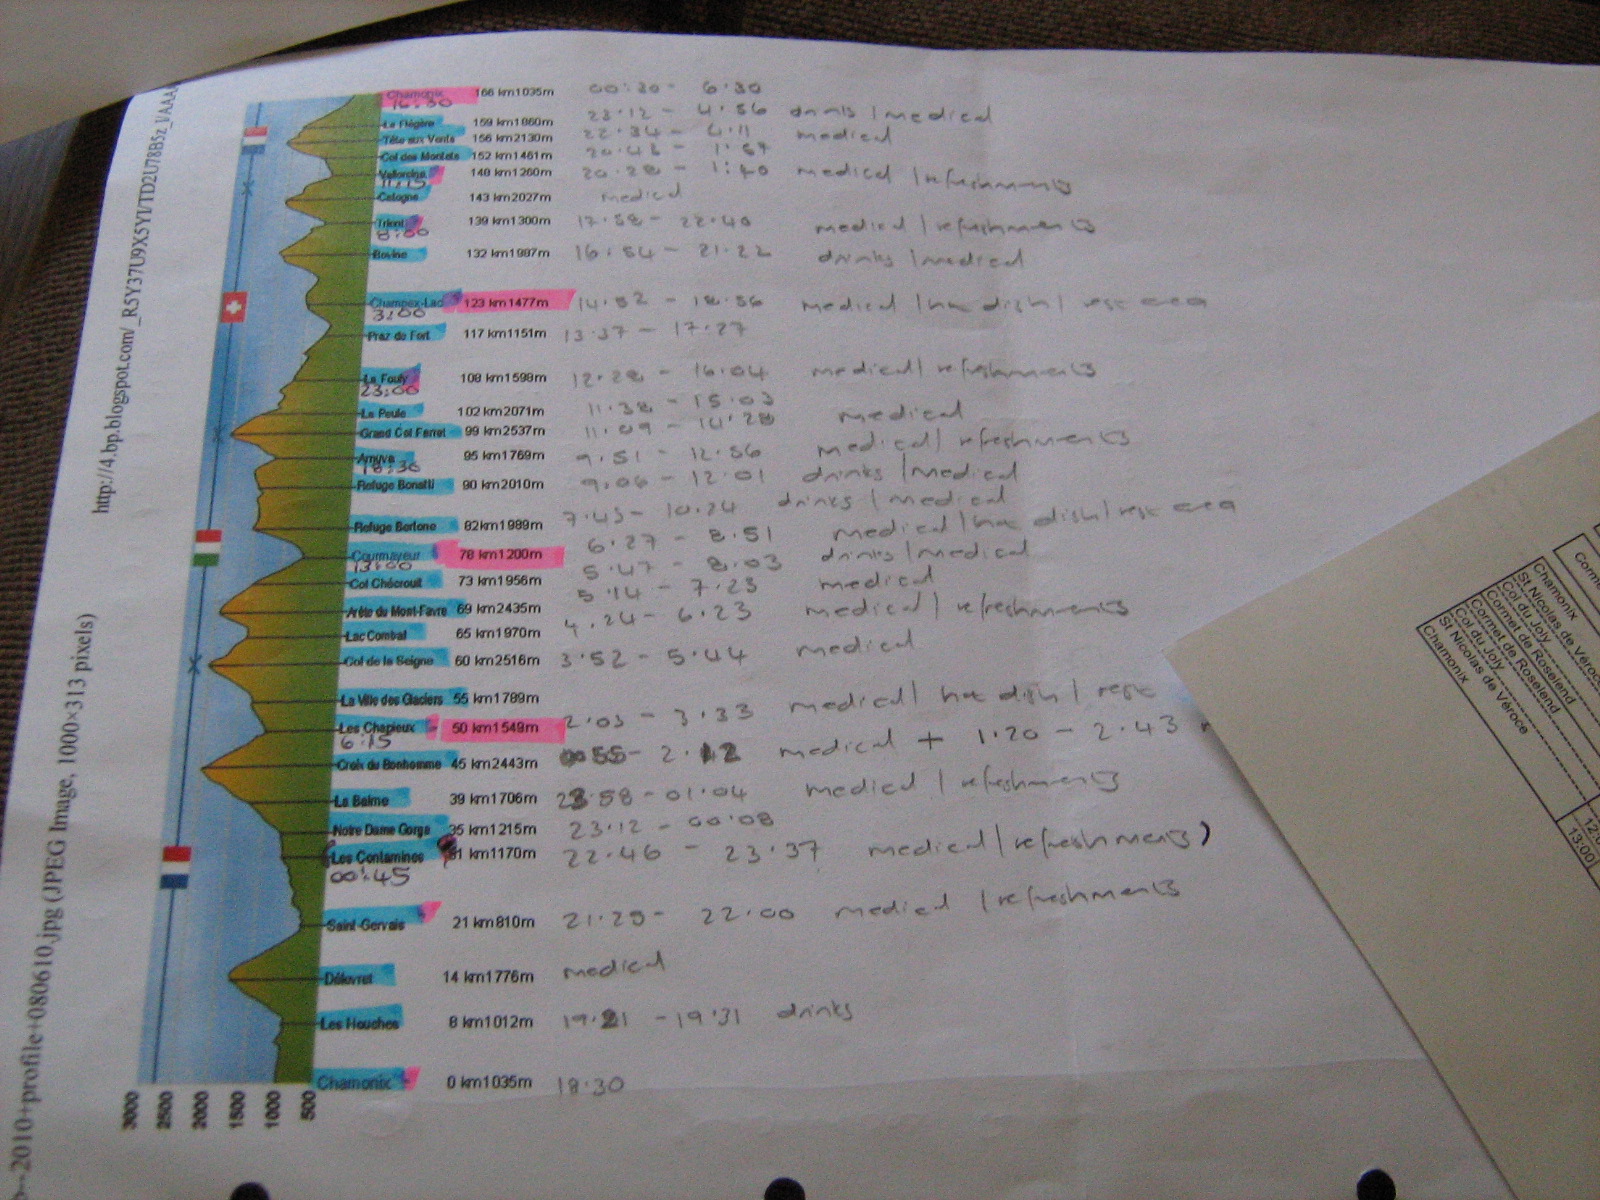 http://4.bp.blogspot.com/_R5Y37U9X5YI/TD2U78B5z_I/AAAA
2010+profile+080610.jpg (JPEG Image, 1000×313 pixels)
Chamonix 166 km1035m 00:30 - 6:30
16:30
La Flégère 159 km1860m 23.12 - 4.56 drinks / medical
Tête aux Vents 156 km2130m 22.34 - 4.11 medical
Col des Montets 152 km1461m 1:57
Vallorcine 149 km1260m 20.28 - 1:40 medical / refreshments
11:15
Catogne 143 km2027m medical
Trient 139 km1300m 17.58 - 22.40 medical / refreshments
8:00
Bovine 132 km1987m 16.54 - 21.22 drinks / medical
Champex-Lac 123 km1477m 14.52 - 18.56 medical / hot dish / rest area
3:00
Praz de Fort 117 km1151m 13.37 - 17.27
La Fouly 108 km1598m 12.28 - 16.04 medical / refreshments
23:00
La Peule 102 km2071m 11.38 - 15.03
Grand Col Ferret 99 km2537m 11.09 - 14.28 medical
Arnuva 95 km1769m 9.51 - 12.56 medical / refreshments
18:30
Refuge Bonatti 90 km2010m 9.06 - 12.01 drinks / medical
Refuge Bertone 82km1989m 7.45 - 10.24 drinks / medical
Courmayeur 78 km1200m 6.27 - 8.51 medical / hot dish / rest area
13:00
Col Chécrouit 73 km1956m 5.47 - 8.03 drinks / medical
Arête du Mont-Favre 69 km2435m 5.14 - 7.23 medical
Lac Combal 65 km1970m 4.24 - 6.23 medical / refreshments
Col de la Seigne 60 km2516m 3.52 - 5.44 medical
La Ville des Glaciers 55 km1789m
Les Chapieux 50 km1549m 2.03 - 3.33 medical / hot dish / rest
6:15
Croix du Bonhomme 45 km2443m 00 55 - 2.12 medical + 1.20 - 2.43
La Balme 39 km1706m 23.58 - 01.04 medical / refreshments
Notre Dame Gorge 35 km1215m 23.12 - 00.08
Les Contamines 31 km1170m 22.46 - 23.37 medical / refreshments)
00:45
Saint-Gervais 21 km810m 21.25 - 22.00 medical / refreshments
Délevret 14 km1776m medical
Les Houches 8 km1012m 19.21 - 19.31 drinks
Chamonix 0 km1035m 18.30
3000
2500
2000
1500
1000
500
Chamonix
St Nicolas de Véroce
Col du Joly
Cormet de Roselend
Cormet de Roselend
Col du Joly
St Nicolas de Véroce
Chamonix
13:00